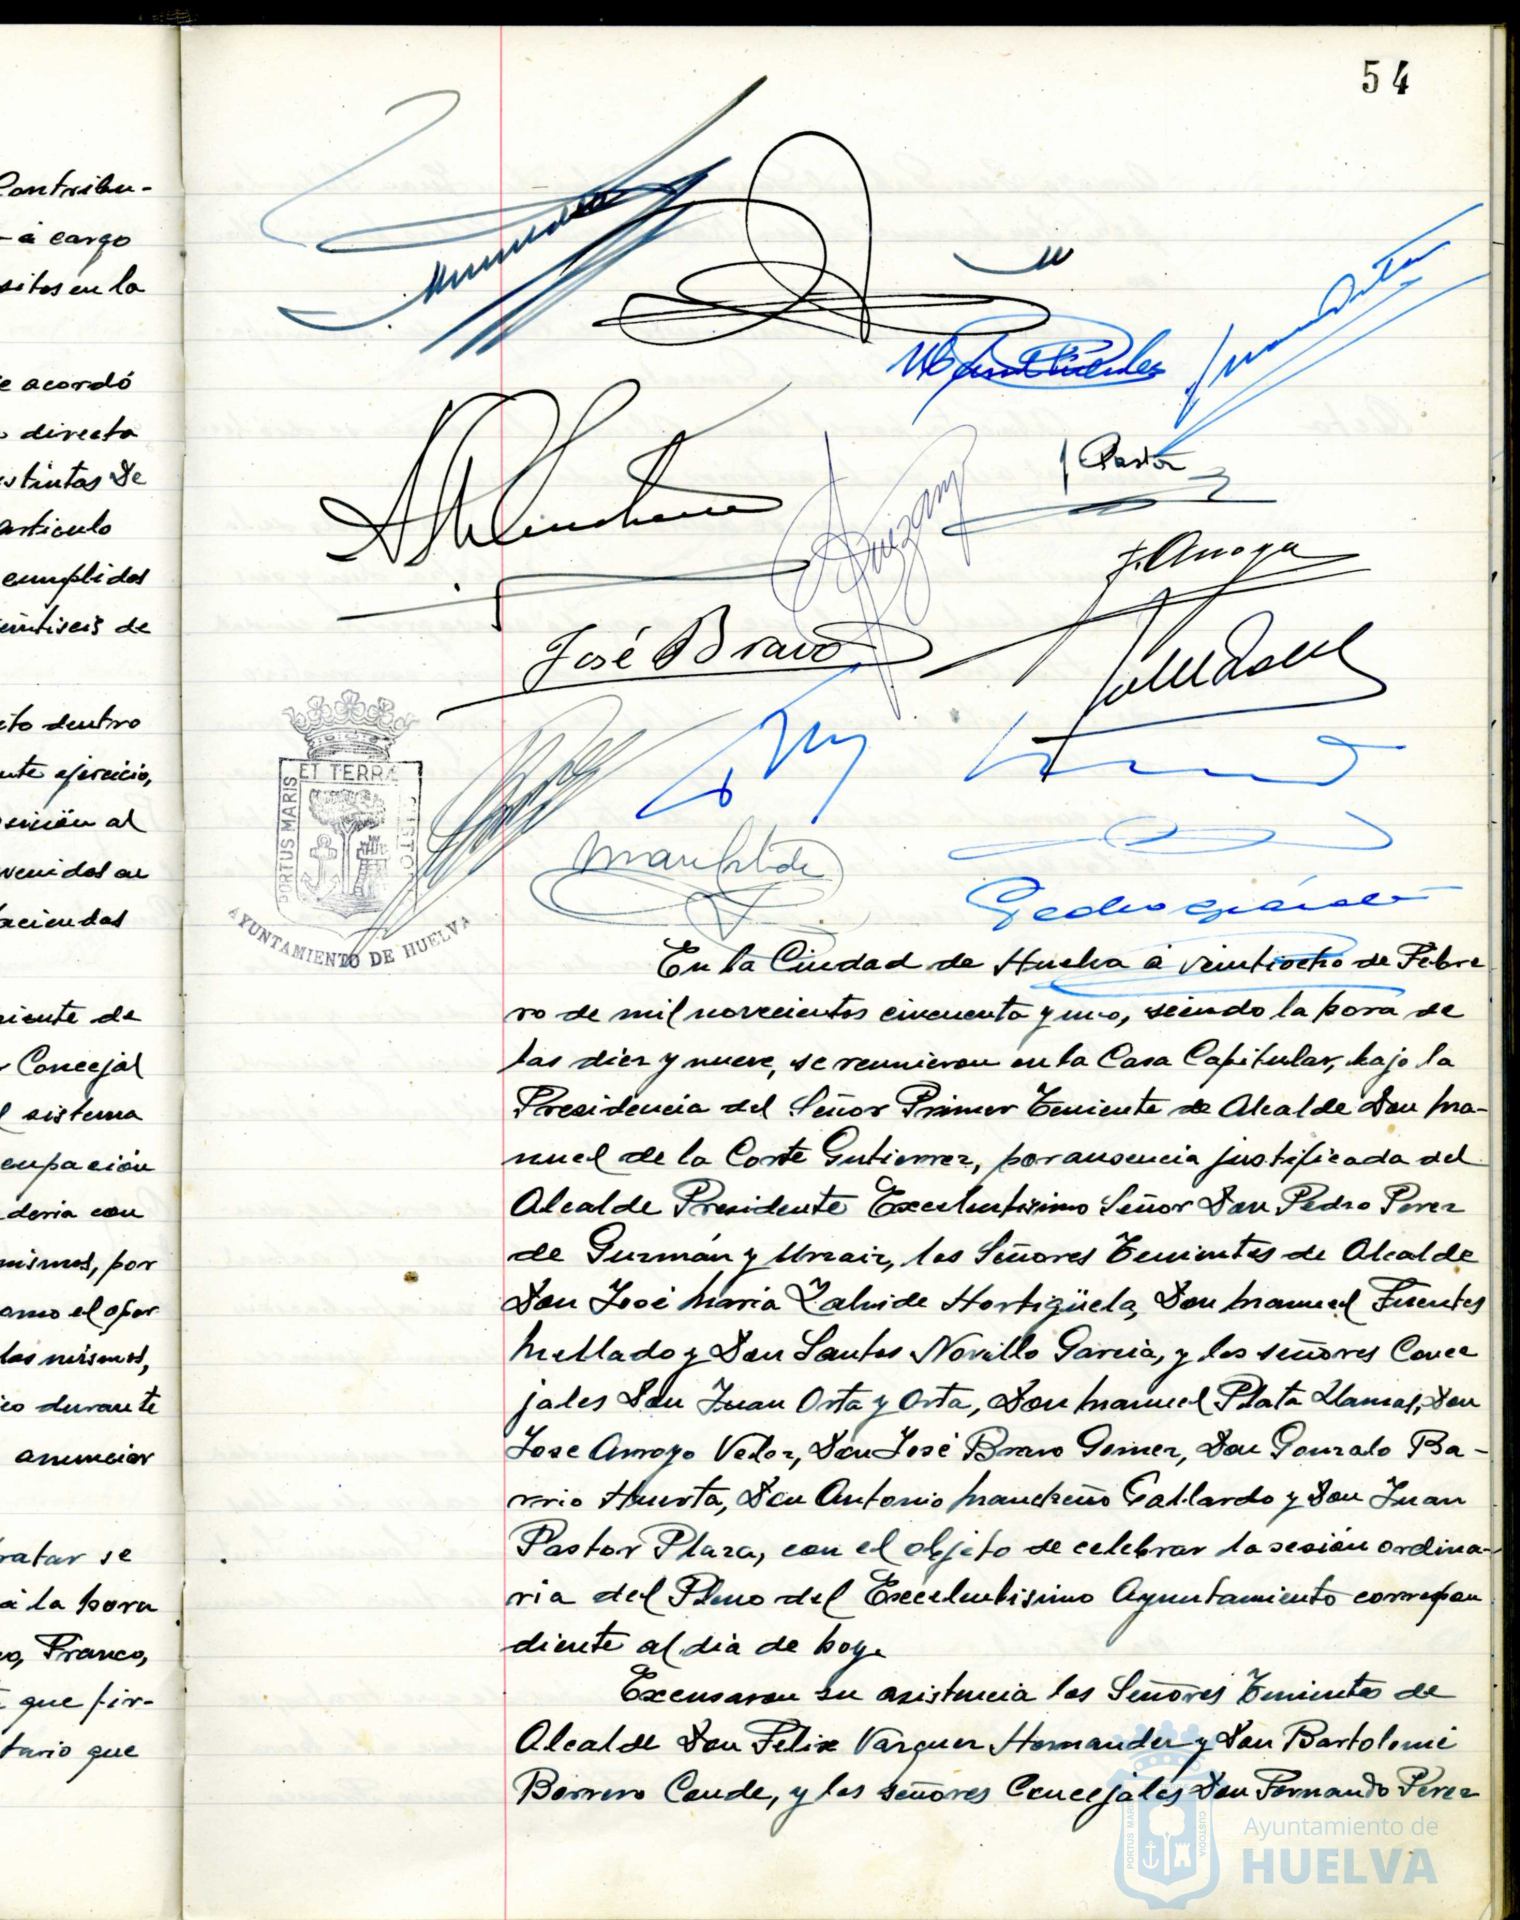 Contribu-
- á cargo
sitos en la
e acordó
directa
stintas De
articulo
cumplidos
eintiseis de
to dentro
nte ejercicio,
venidos al
niente de
Concejal
sistema
ocupación
deria con
mismos, por
los mismos,
co durante
anunciar
ratar se
á la hora
Franco,
que fir-
tario que
54
J Pastor
J. Arroyo
José Bravo
PORTUS MARIS ET TERRÆ CUSTO
AYUNTAMIENTO DE HUELVA
En la Ciudad de Huelva á veintiocho de Febre
ro de mil novecientos cincuenta y uno, siendo la hora de
las diez y nueve, se reunieron en la Casa Capitular, bajo la
Presidencia del Señor Primer Teniente de Alcalde Don Ma-
nuel de la Corte Gutierrez, por ausencia justificada del
Alcalde Presidente Excelentisimo Señor Don Pedro Perez
de Guzmán y Urzaiz, los Señores Tenientes de Alcalde
Don José Maria Zalvide Hortigüela, Don Manuel Fuentes
Mellado y Don Santos Novillo Garcia, y los señores Conce
jales Don Juan Orta y Orta, Don Manuel Plata Llamas, Don
Jose Arroyo Vedor, Don José Bravo Gomez, Don Gonzalo Ba-
rrio Huerta, Don Antonio Mancheño Gallardo y Don Juan
Pastor Plaza, con el objeto de celebrar la sesión ordina-
ria del Pleno del Excelentisimo Ayuntamiento correspon
diente al dia de hoy.
Excusaron su asistencia los Señores Tenientes de
Alcalde Don Felix Vazquez Hernandez y Don Bartolomé
Borrero Conde, y los señores Concejales Don Fernando Perez
PORTUS MARIS CUSTODIA
Ayuntamiento de
HUELVA